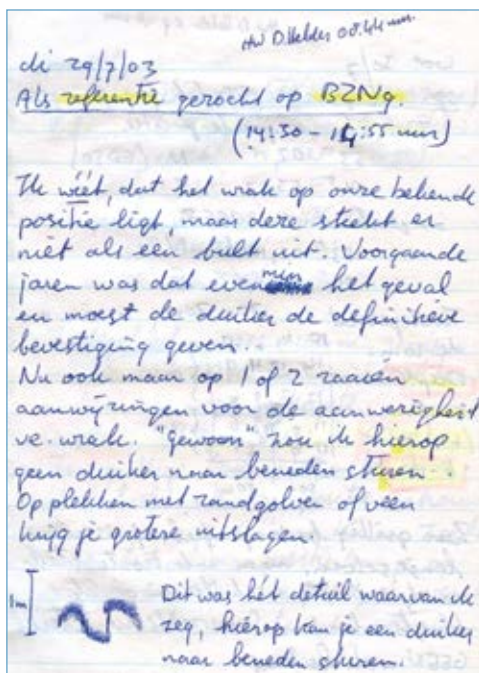 HW D.Helder 08.44 uur.
di 29/7/03
Als referentie gezocht op BZN9.
(14:30 - 14:55 uur)
Ik wéét, dat het wrak op onze bekende
positie ligt, maar deze steekt er
niét als een bult uit. Voorgaande
jaren was dat evenmin het geval
en moest de duiker de definitieve
bevestiging geven.
Nu ook maar op 1 of 2 raaien
aanwijzingen voor de aanwezigheid
ve. wrak. "gewoon" zou ik hierop
geen duiker naar beneden sturen.
Op plekken met zandgolven of veen
krijg je grotere uitslagen
1m
Dit was hét detail waarvan ik
zeg, hierop kan je een duiker
naar beneden sturen.